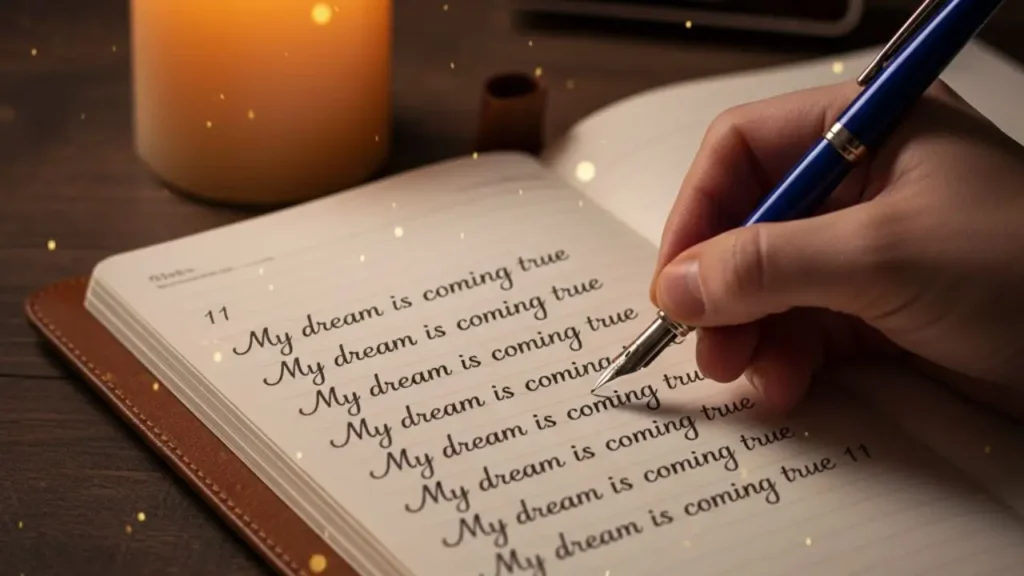 11
My dream is coming true
My dream is coming true
My dream is coming true
My dream is coming
My dream is coming tru
My dream is coming true
My dream is coming true
My dream is coming true 11